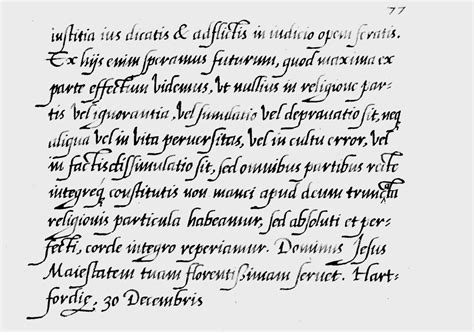 77
iustitia ius dicatis & adflictis in iudicio opem feratis.
Ex hijs enim speramus futurum, quod maxima ex
parte effectum videmus, vt nullius in religione par-
tis vel ignorantia, vel simulatio vel deprauatio sit, neq
aliqua vel in vita peruersitas, vel in cultu error, vel
in factis dissimulatio sit, sed omnibus partibus recte
integreq́ constitutis non manci apud deum truncata
religionis particula habeamur, sed absoluti et per-
fecti, corde integro reperiamur. Dominus Jesus
Maiestatem tuam florentissimam seruet. Hart-
fordię, 30 Decembris